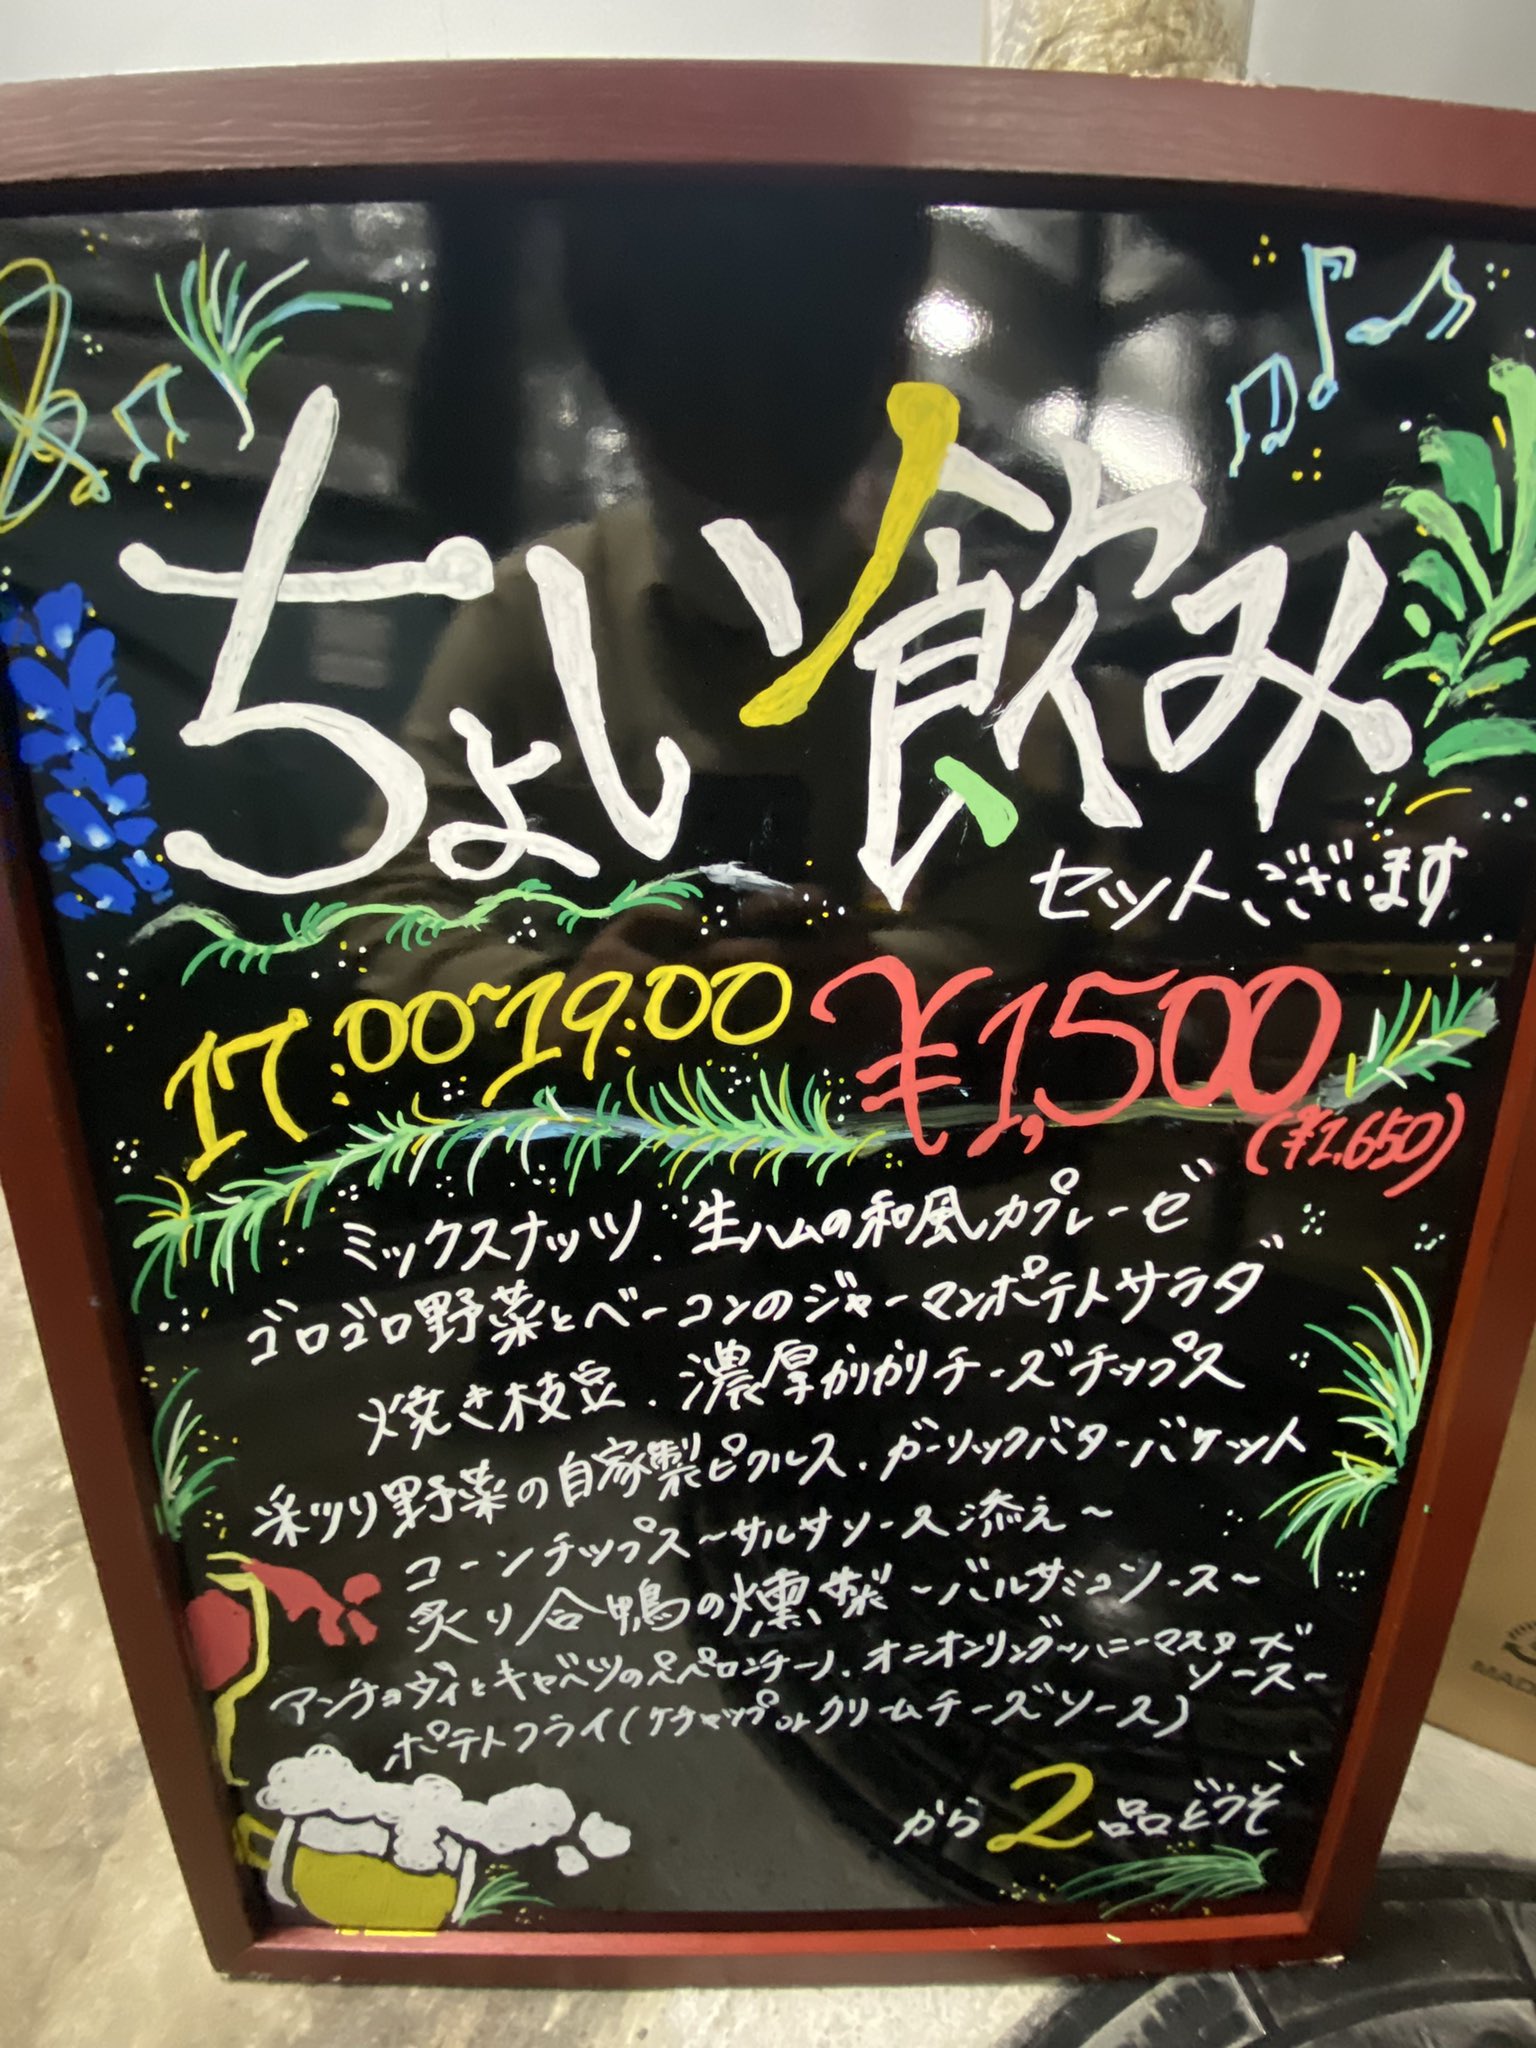 ちょい飲み
セットございます
17:00~19:00 ¥1,500
(¥1,650)
ミックスナッツ、生ハムの和風カプレーゼ
ゴロゴロ野菜とベーコンのジャーマンポテトサラダ
焼き枝豆、濃厚カリカリチーズチップス
彩ツリ野菜の自家製ピクルス、ガーリックバターバケット
コーンチップス~サルサソース添え~
炙り合鴨の燻製~バルサミコソース~
アンチョヴィとキャベツのペペロンチーノ、オニオンリング~ハニーマスタード
ソース~
ポテトフライ(ケチャップorクリームチーズソース)
から2品どうぞ